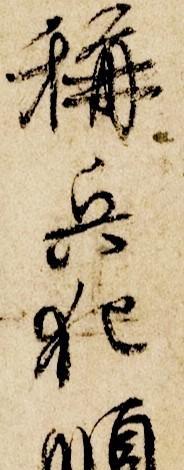 稱兵犯順